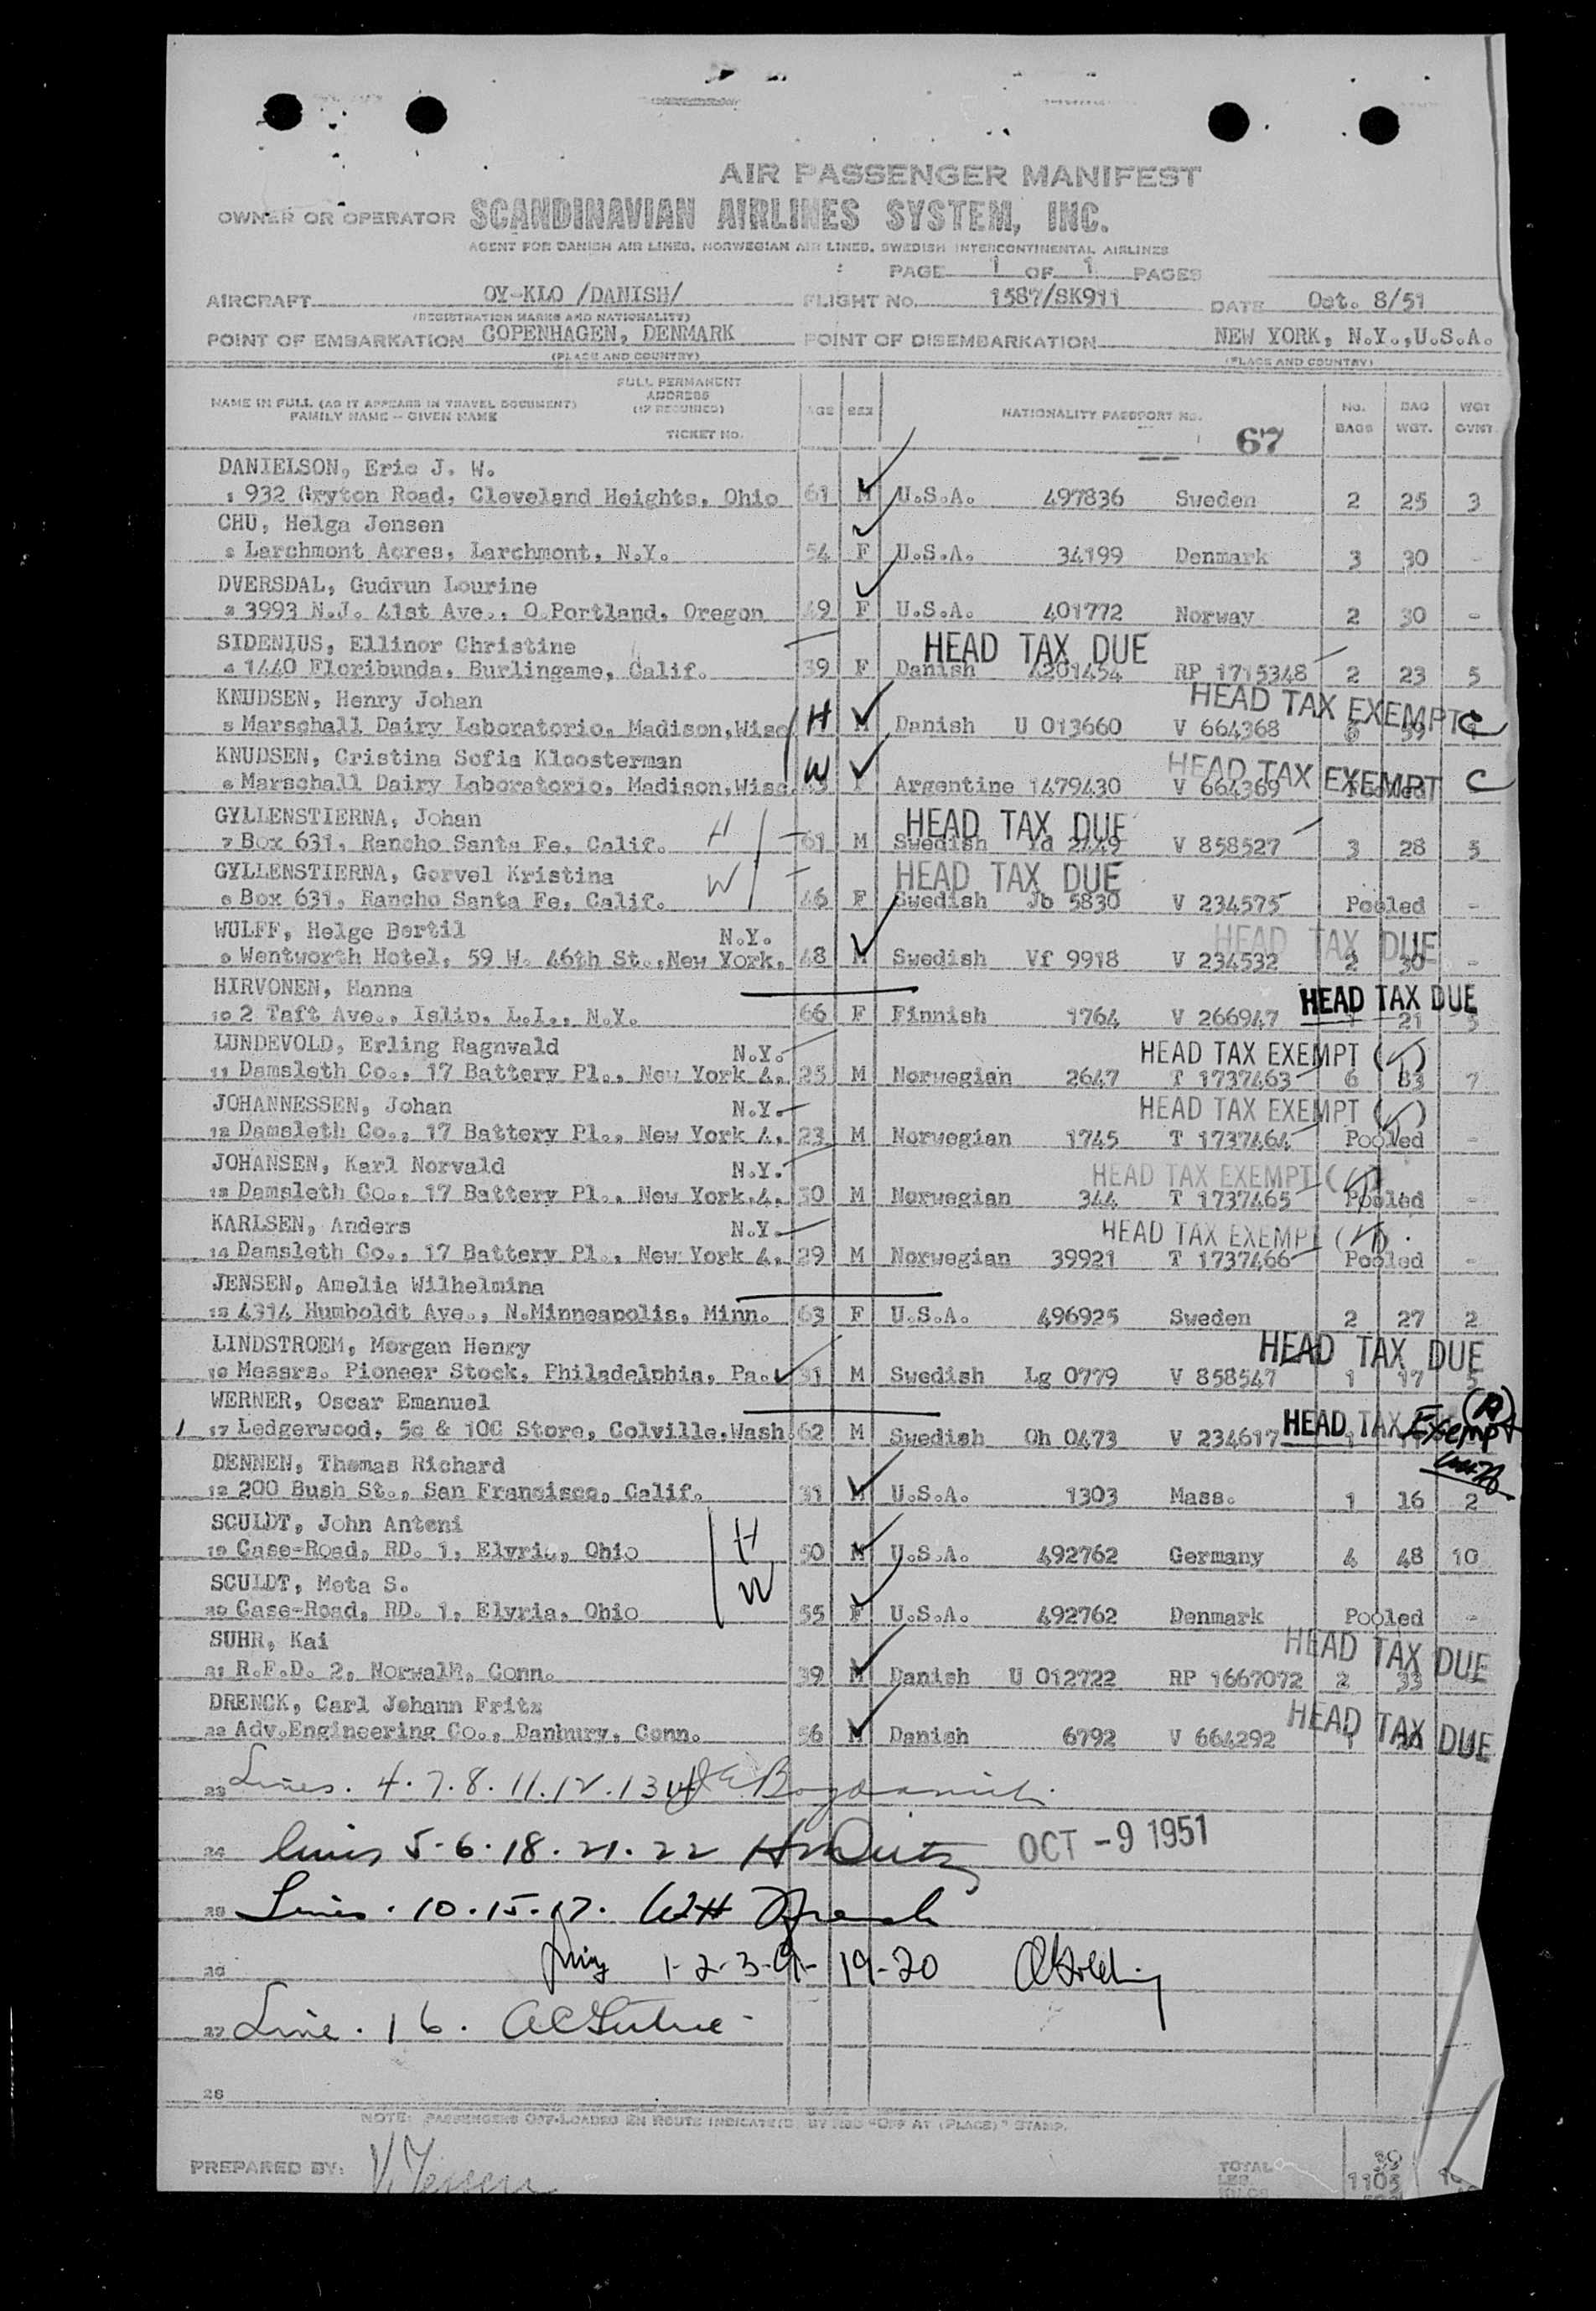 AIR PASSENGER MANIFEST
OWNER OR OPERATOR SCANDINAVIAN AIRLINES SYSTEM, INC.
AGENT FOR DANISH AIR LINES, NORWEGIAN AIR LINES, SWEDISH INTERCONTINENTAL AIRLINES
PAGE 1 OF 1 PAGES
AIRCRAFT OY-KLO /DANISH/ FLIGHT No. 1587/SK911 DATE Oct. 8/51
(REGISTRATION MARKS AND NATIONALITY)
POINT OF EMBARKATION COPENHAGEN, DENMARK POINT OF DISEMBARKATION NEW YORK, N.Y.,U.S.A.
(PLACE AND COUNTRY) (PLACE AND COUNTRY)
NAME IN FULL (AS IT APPEARS IN TRAVEL DOCUMENT) FAMILY NAME — GIVEN NAME FULL PERMANENT ADDRESS (IF REQUIRED) TICKET No. AGE SEX NATIONALITY PASSPORT NO. NO. BAGS BAG WGT. WGT OVWT.
67
DANIELSON, Eric J. W.
1 932 Gryton Road, Cleveland Heights, Ohio 61 M U.S.A. 497836 Sweden 2 25 3
CHU, Helga Jensen
2 Larchmont Acres, Larchmont, N.Y. 54 F U.S.A. 34199 Denmark 3 30 -
DVERSDAL, Gudrun Lourine
3 3993 N.J. 41st Ave., O.Portland, Oregon 49 F U.S.A. 401772 Norway 2 30 -
SIDENIUS, Ellinor Christine HEAD TAX DUE
4 1440 Floribunda, Burlingame, Calif. 39 F Danish 4201454 RP 1715348 2 23 5
KNUDSEN, Henry Johan HEAD TAX EXEMPT C
5 Marschall Dairy Laboratorio, Madison,Wisc H M Danish U 013660 V 664368 59
KNUDSEN, Cristina Sofia Kloosterman HEAD TAX EXEMPT C
6 Marschall Dairy Laboratorio, Madison,Wisc. W F Argentine 1479430 V 664369 Pooled
GYLLENSTIERNA, Johan H HEAD TAX DUE
7 Box 631, Rancho Santa Fe, Calif. 61 M Swedish Yd 2449 V 858527 3 28 5
GYLLENSTIERNA, Gorvel Kristina W HEAD TAX DUE
8 Box 631, Rancho Santa Fe, Calif. 46 F Swedish Jb 5830 V 234575 Pooled -
WULFF, Helge Bertil N.Y. HEAD TAX DUE
9 Wentworth Hotel, 59 W. 46th St.,New York, 48 M Swedish Vf 9918 V 234532 2 30 -
HIRVONEN, Hanna HEAD TAX DUE
10 2 Taft Ave., Islip, L.I., N.Y. 66 F Finnish 1764 V 266947 1 21 5
LUNDEVOLD, Erling Ragnvald N.Y. HEAD TAX EXEMPT ( )
11 Damsleth Co., 17 Battery Pl., New York 4, 25 M Norwegian 2647 T 1737463 6 83 7
JOHANNESSEN, Johan N.Y. HEAD TAX EXEMPT ( )
12 Damsleth Co., 17 Battery Pl., New York 4, 23 M Norwegian 1745 T 1737464 Pooled -
JOHANSEN, Karl Norvald N.Y. HEAD TAX EXEMPT ( )
13 Damsleth Co., 17 Battery Pl., New York,4, 30 M Norwegian 344 T 1737465 Pooled -
KARLSEN, Anders N.Y. HEAD TAX EXEMPT ( )
14 Damsleth Co., 17 Battery Pl., New York 4, 29 M Norwegian 39921 T 1737466 Pooled -
JENSEN, Amelia Wilhelmina
15 4314 Humboldt Ave., N.Minneapolis, Minn. 63 F U.S.A. 496925 Sweden 2 27 2
LINDSTROEM, Morgan Henry HEAD TAX DUE
16 Messrs. Pioneer Stock, Philadelphia, Pa. 31 M Swedish Lg 0779 V 858547 1 17 5
WERNER, Oscar Emanuel (A)
1 17 Ledgerwood, 5c & 10C Store, Colville,Wash. 62 M Swedish Oh 0473 V 234617 HEAD TAX Exempt
DENNEN, Thomas Richard
18 200 Bush St., San Francisco, Calif. 31 M U.S.A. 1303 Mass. 1 16 2
SCULDT, John Antoni H
19 Case-Road, RD. 1, Elyria, Ohio 50 M U.S.A. 492762 Germany 4 48 10
SCULDT, Meta S. W
20 Case-Road, RD. 1, Elyria, Ohio 55 F U.S.A. 492762 Denmark Pooled -
SUHR, Kai HEAD TAX DUE
21 R.F.D. 2, Norwalk, Conn. 39 M Danish U 012722 RP 1667072 2 33
DRENCK, Carl Johann Fritz HEAD TAX DUE
22 Adv.Engineering Co., Danbury, Conn. 56 M Danish 6792 V 664292 1
23 Lines. 4.7.8.11.12.13.14
24 lines 5-6-18-21-22 OCT -9 1951
25 Lines. 10.15.17. WH French
26 1-2-3-9- 19-20
27 Line. 16.
28
NOTE: PASSENGERS OFF-LOADED EN ROUTE INDICATED BY RED "OFF AT (PLACE)" STAMP.
PREPARED BY: TOTAL
LBS. 1105
KILOS